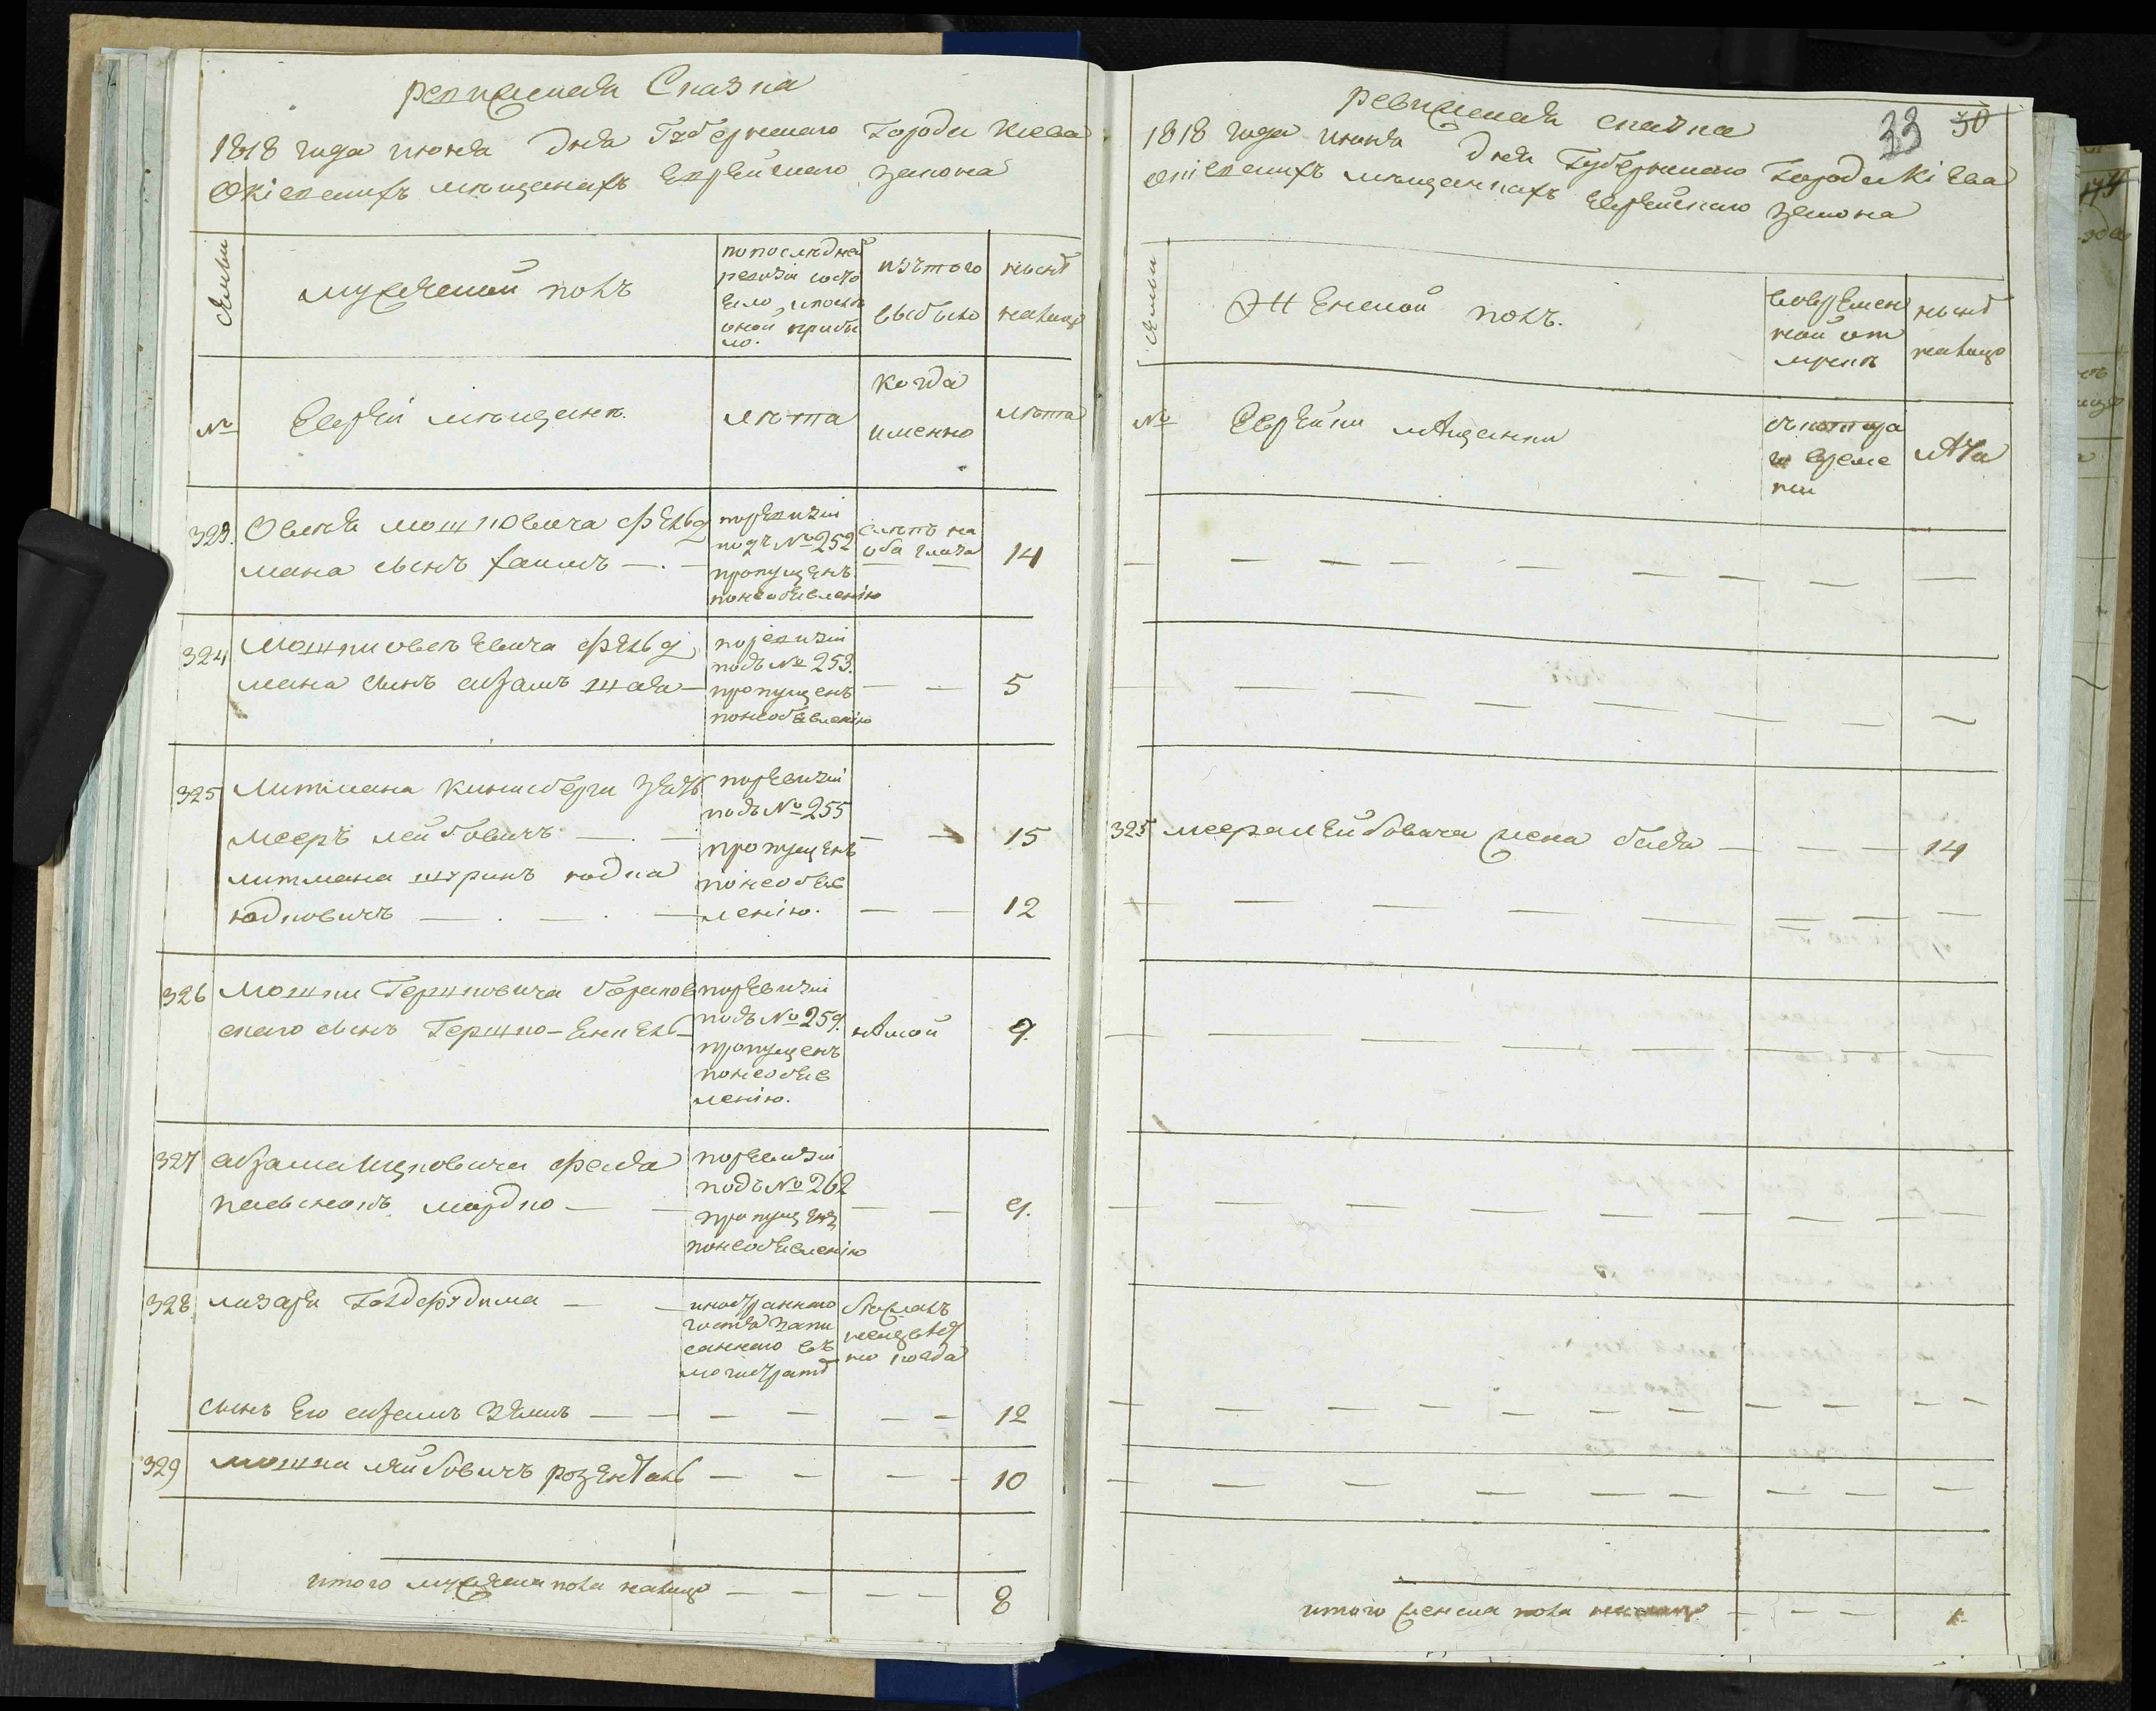 ревизская Сказка
1818 года июня дня Губернскаго Города Киева
О киевскихъ мещанахъ Еврейскаго закона
семьи
мужеской полъ
по последней
ревизіи состо
яло, и после
оной прибы
ло.
изъ того
выбыло
ныне
налицо
№
Евреи мещане
лета
когда
именно
лета
323. Овсея мошковича фельд
мана сынъ хаимъ
по ревизіи
подъ № 252
пропущенъ
по необъявленію
слепъ на
оба глаза
14
324 мошки овсеевича фельд
мана сынъ абрамъ шая
по ревизіи
подъ № 253.
пропущенъ
по необъявленію
5
325 Литмана кинисберги зять
мееръ лейбовичъ
по ревизіи
подъ № 255
пропущенъ
по необъяв
ленію.
15
литмана шуринъ юдка
юдковичъ
12
326 мошки Гершковича
скаго сынъ Гершко-Енкель
по ревизіи
подъ № 259.
пропущенъ
по необъяв
ленію.
немой
9.
327 абрама ицковича
сынъ мордко
по ревизіи
подъ № 262
пропущенъ
по необъявленію
9.
328 лизаря
иностраннаго
гостя запи
саннаго въ
магистрате
бежалъ
неизвестно
когда
сынъ его абрамъ зелик
12
329 мошка лейбовичъ розенталь
10
итого мужеска пола налицо
8
ревизская сказка
33 30
1818 года июня дня Губернскаго Города Кіева
о кіевскихъ мещанкахъ Еврейскаго закона
семьи
Женской полъ.
во времен
ной от
лучке
ныне
налицо
№
Еврейки мещанки
съ котора
го време
ни
лета
325 меера лейбовича жена бася
14
итого женска пола налицо
1.